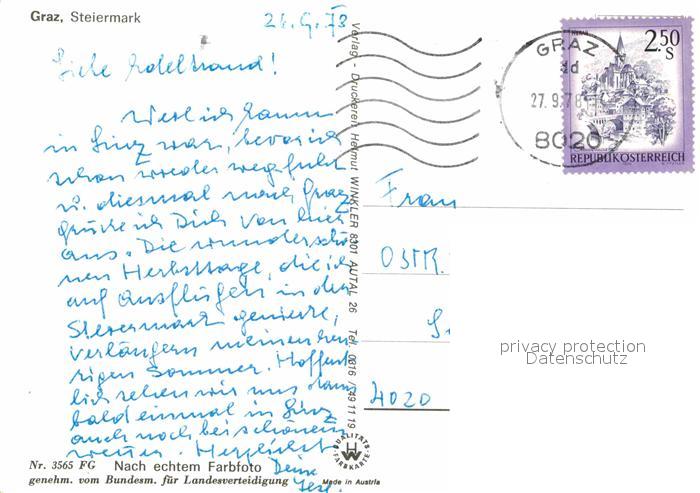 Graz, Steiermark
26.9.78
Liebe
Weil ich kaum
in Linz war, bevor ich
schon wieder wegfuhr
u. diesmal nach Graz
grüße ich Dich von hier
aus. Die wunderschö-
nen Herbsttage, die ich
auf Ausflügen in der
Steiermark genieße,
verlängern meinen heu
rigen Sommer. Hoffent
lich sehen wir uns dann
bald einmal in Linz
auch noch bei schönem
Wetter. Herzlichst
Deine
Nr. 3565 FG Nach echtem Farbfoto
genehm. vom Bundesm. für Landesverteidigung
Made in Austria
Verlag - Druckerei Helmut WINKLER 8301 AUTAL 26 Tel. 0316 / 49 11 19
QUALITÄTS
FARBKARTE
HW
GRAZ
27.9.78
8020
2.50
S
REPUBLIK ÖSTERREICH
Frau
4020
privacy protection
Datenschutz